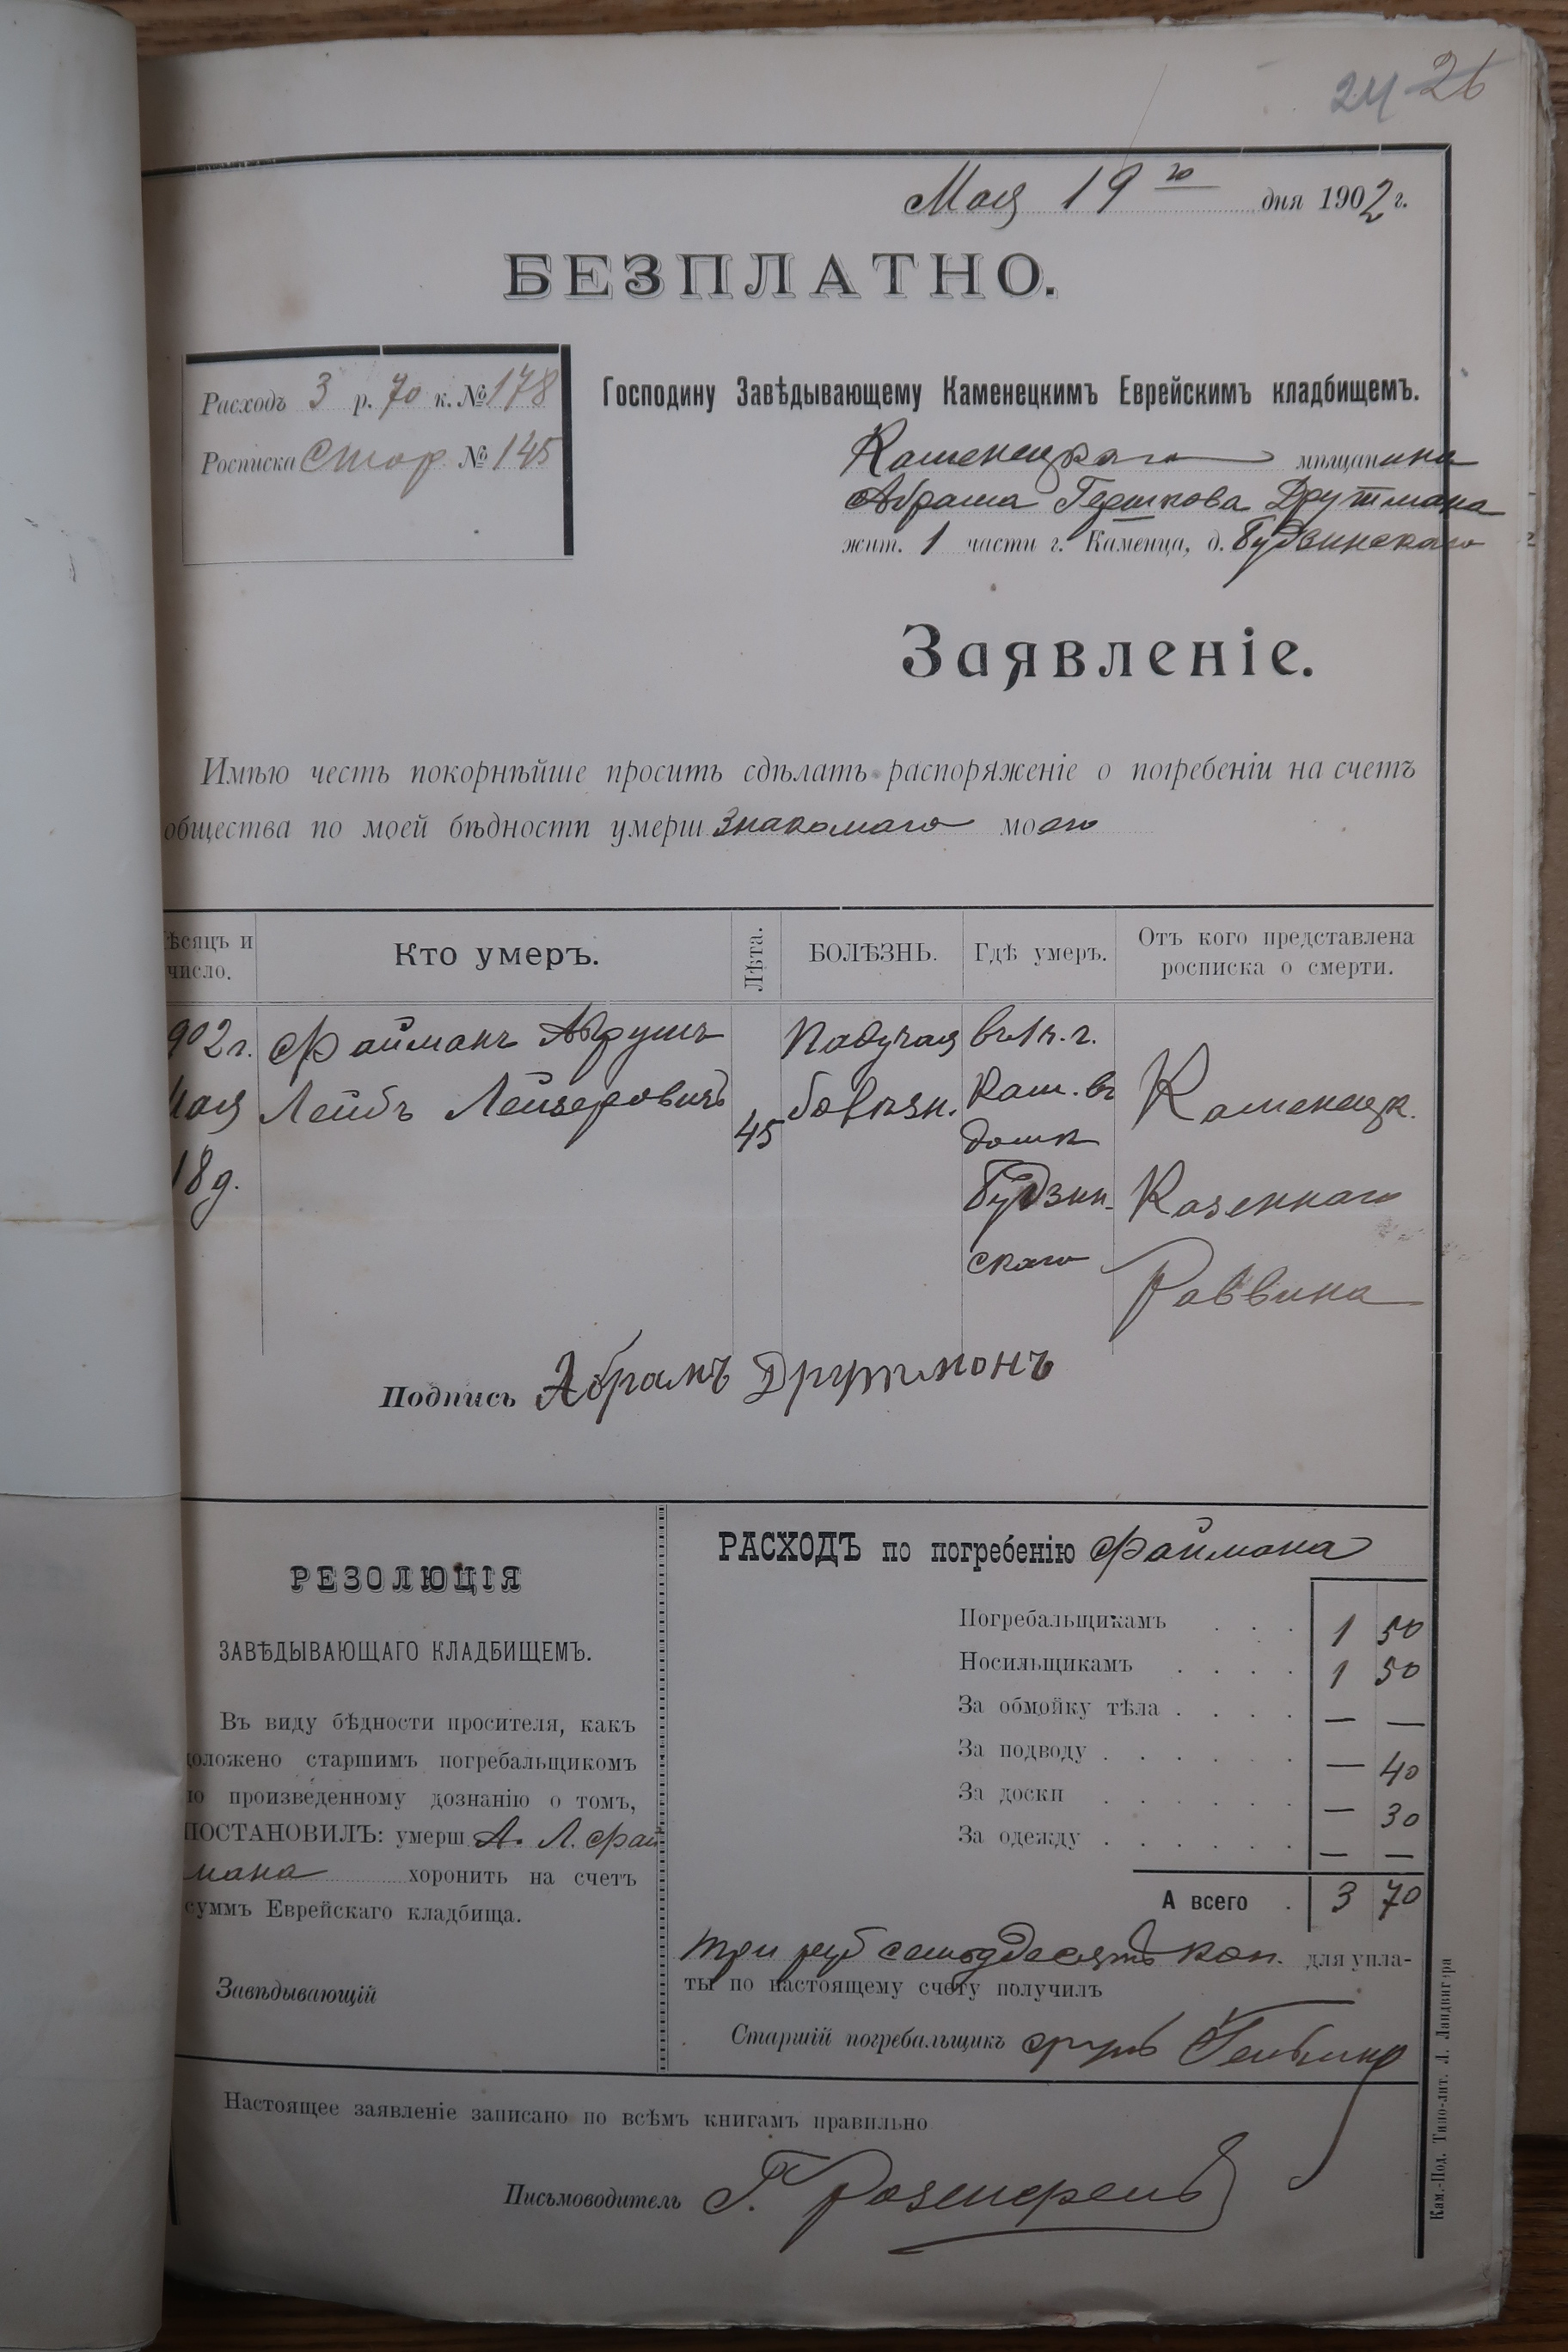 24 26
Мая 19го дня 1902 г.
БЕЗПЛАТНО.
Расходъ 3 р. 70 к. № 178
Росписка Стор № 145
Господину Завѣдывающему Каменецкимъ Еврейскимъ кладбищемъ.
Каменецкаго мѣщанина
Абрама Гершкова Друтмана
жит. 1 части г. Каменца, д. Будзинскаго
Заявленіе.
Имѣю честь покорнѣйше просить сдѣлать распоряженіе о погребеніи на счетъ
общества по моей бѣдности умерш знакомаго моего
ѣсяцъ и число. Кто умеръ. Лѣта. БОЛѢЗНЬ. Гдѣ умеръ. Отъ кого представлена росписка о смерти.
902 г. Файманъ Абрумъ Падучая въ 1 ч. г.
мая Лейбъ Лейзеровичъ 45 болѣзн. Кам. въ Каменецк.
18 д. домѣ
Будзин- Казеннаго
скаго Раввина
Подпись Абрамъ Друтмонъ
РЕЗОЛЮЦІЯ
ЗАВѢДЫВАЮЩАГО КЛАДБИЩЕМЪ.
Въ виду бѣдности просителя, какъ
доложено старшимъ погребальщикомъ
по произведенному дознанію о томъ,
ПОСТАНОВИЛЪ: умерш А. Л. Фай
мана хоронить на счетъ
суммъ Еврейскаго кладбища.
Завѣдывающій
РАСХОДЪ по погребенію Файмана
Погребальщикамъ . . . 1 50
Носильщикамъ . . . . 1 50
За обмойку тѣла . . . . — —
За подводу . . . . . . — 40
За доски . . . . . . — 30
За одежду . . . . . . — —
А всего . 3 70
Три руб семьдесятъ коп. для упла-
ты по настоящему счету получилъ
Старшій погребальщикъ
Настоящее заявленіе записано по всѣмъ книгамъ правильно
Письмоводитель Г.
Кам.-Под. Типо-лит. Л. Ландвигера